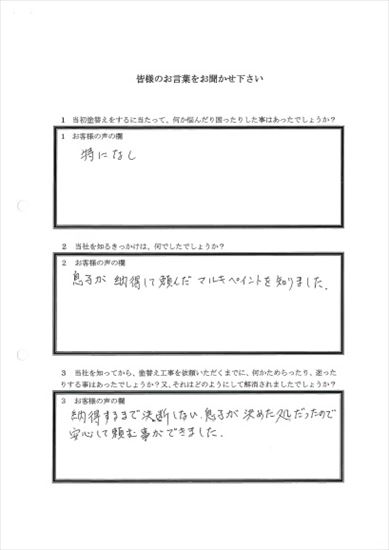 皆様のお言葉をお聞かせ下さい
1 当初塗替えをするに当たって、何か悩んだり困ったりした事はあったでしょうか？
1 お客様の声の欄
特になし
2 当社を知るきっかけは、何でしたでしょうか？
2 お客様の声の欄
息子が 納得して頼んだ マルキペイントを知りました。
3 当社を知ってから、塗替え工事を依頼いただくまでに、何かためらったり、迷った
りする事はあったでしょうか？又、それはどのようにして解消されましたでしょうか？
3 お客様の声の欄
納得するまで決断しない、息子が 決めた処だったので
安心して頼む事ができました。